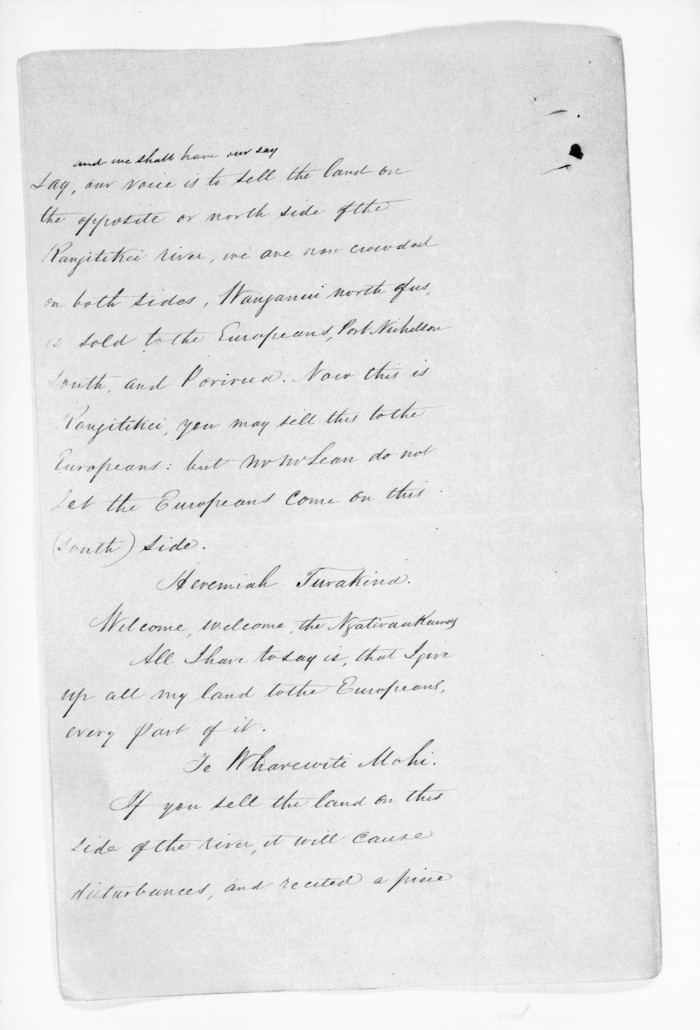 and we shall have our say
say, our voice is to sell the land on
the opposite or north side of the
Rangitikei river, we are now crowded
on both sides, Wanganui north of us,
is sold to the Europeans, Port Nicholson
South, and Porirua. Now this is
Rangitikei, you may sell this to the
Europeans: but Mr McLean do not
let the Europeans come on this
(South) side.
Heremiah Turakina.
Welcome, welcome, the Ngatiraukawas
All I have to say is, that I give
up all my land to the Europeans,
every part of it.
Te Wharewiti Mohi.
If you sell the land on this
side of the river, it will cause
disturbances, and recited a piece